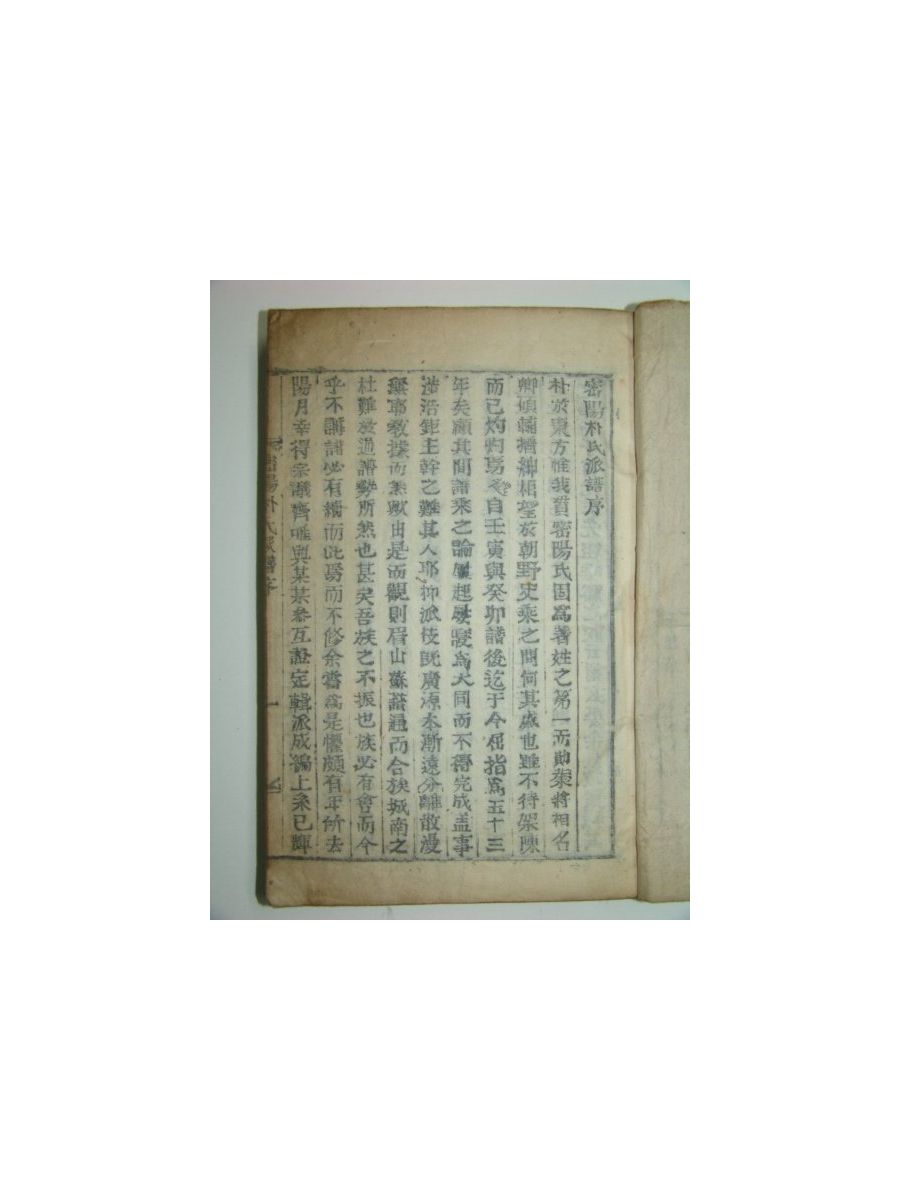 密陽朴氏派譜序
朴於東方惟我貫密陽氏固爲著姓之第一而勛業將相名
卿碩輔搢紳相望於朝野史乘之間何其盛也雖不待架陳
而已灼灼焉矣自壬寅與癸卯譜後迄于今屈指爲五十三
年矣顧其間譜乘之論屢起屢寢爲大同而不得完成盖事
浩浩鉅主幹之難其人耶抑派枝旣廣源本漸遠分離散漫
無聚據而然歟由是而觀則眉山蘇譜通而合族城南之
杜難於通譜勢所然也甚矣吾族之不振也族必有會而今
乎不講譜必有續而此焉而不修余嘗爲是懼頗有年所去
陽月幸得宗議齊唯與某某參互證定輯派成編上系已輝
密陽朴氏派譜序
一